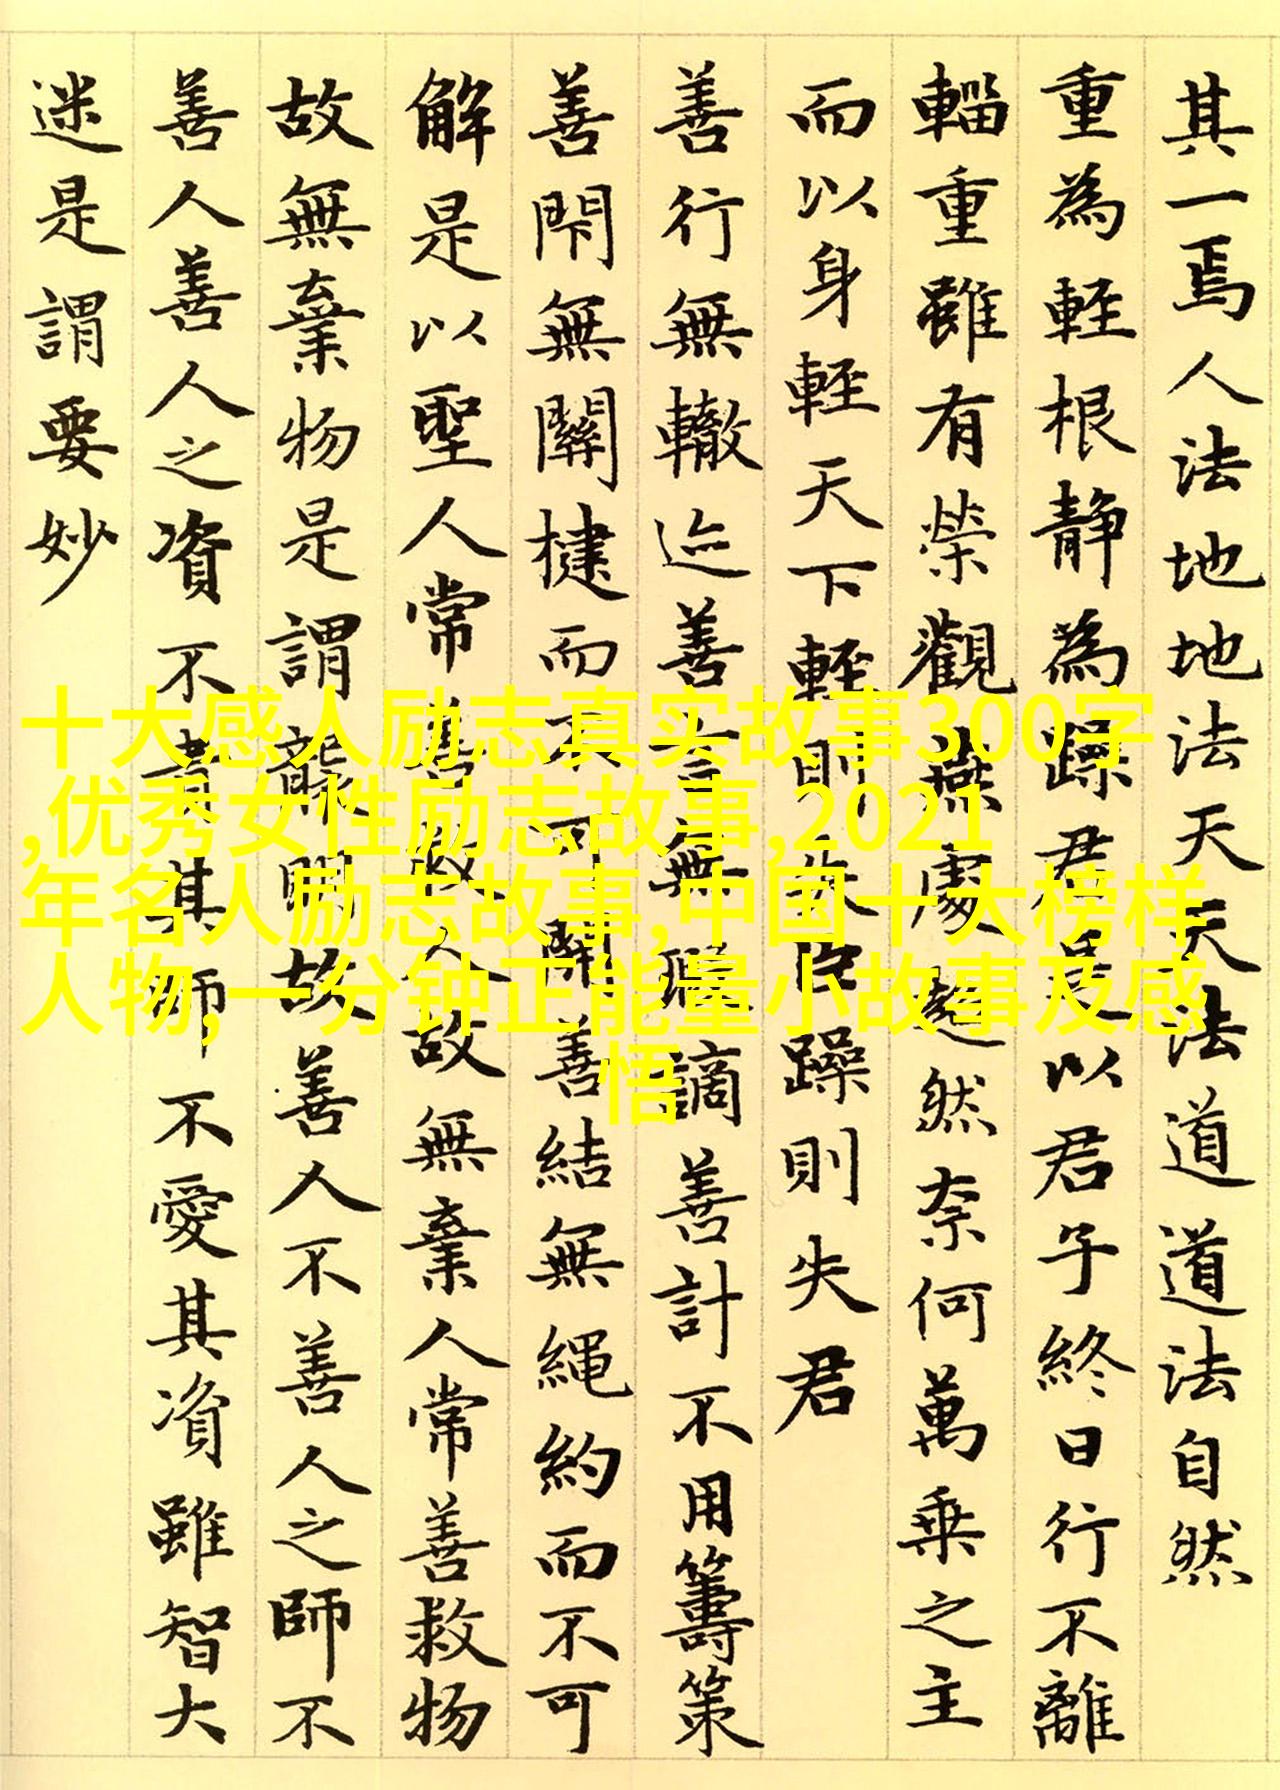 其一焉人法地地法天天法道道法自然
重為輕根靜為躁君是以君子終日行不離
輜重雖有榮觀燕處超然柰何萬乘之主
而以身輕天下輕則失臣躁則失君
善行無轍迹善言無瑕謫善計不用籌策
善閇無關楗而不可開善結無繩約而不可
解是以聖人常善救人故無棄人常善救物
故無棄物是謂襲明故善人不善人之師不
善人善人之資不貴其師不愛其資雖智大
迷是謂要妙
十大感人励志真实故事300字
,优秀女性励志故事,2021
年名人励志故事,中国十大榜样
人物,一分钟正能量小故事及感
悟